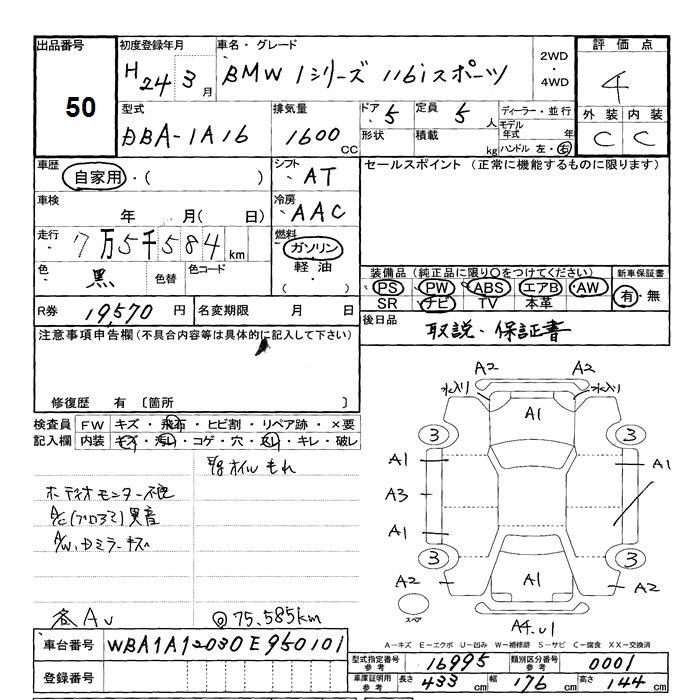 出品番号 50
初度登録年月 H24 3月
車名・グレード BMW 1シリーズ 116iスポーツ
2WD ・ 4WD
評価点 4
外装 内装
C C
型式 DBA-1A16
排気量 1600 CC
ドア 5
定員 5 人
ディーラー・並行
モデル年式 年
形状
積載 kg
ハンドル 左・右
車歴 自家用・( )
シフト AT
セールスポイント (正常に機能するものに限ります)
車検 年 月( 日)
冷房 AAC
走行 7万5千584km
燃料 ガソリン
軽油
・( )
色 黒 色替 色コード
装備品 (純正品に限り○をつけてください)
新車保証書
PS PW ABS エアB AW
SR ナビ TV 本革
有・無
R券 19,570 円
名変期限 月 日
後日品 取説・保証書
注意事項申告欄(不具合内容等は具体的に記入して下さい)
修復歴 有 〔箇所 〕
検査員 FW キズ・飛石・ヒビ割・リペア跡・×要
記入欄 内装 キズ・汚レ・コゲ・穴・スレ・キレ・破レ
オイルもれ
A/C(ブロアー)異音
A/W、Dミラーキズ
各AU
@75,585km
A2 A2
水入り 水入り
A1
3 3
A1 A1
A3
A1
3 3
A2 A1 A2
スペア
A4.U1
A-キズ E-エクボ U-凹み W-補修跡 S-サビ C-腐食 XX-交換済
車台番号 WBA1A12030E950101
型式指定番号 参考 16995
類別区分番号 参考 0001
登録番号
車庫証明用 参考 長さ 433 cm 幅 176 cm 高さ 144 cm